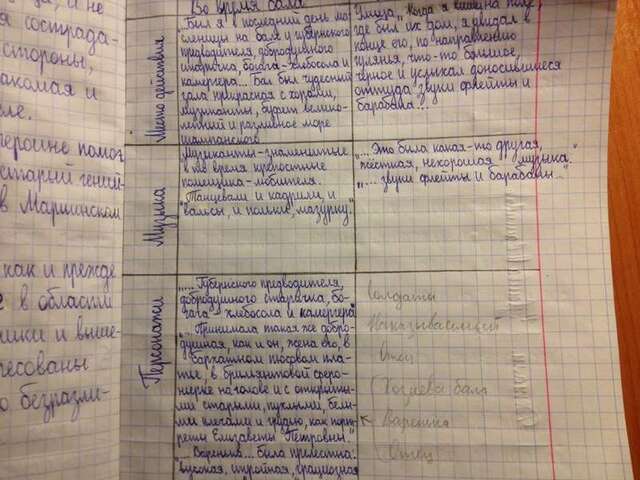 а, и не
я сострада-
стороны,
акомая и
ле.
героине помог
старый гений
в Мариинском
как и прежде
е в области
ники и выше-
ресованы
о безразли-
Во время бала
Место действия
"Был я в последний день мас
леницы на бале у губернского
предводителя, добродушного
старичка, богача-хлебосола и
камергера... Бал был чудесный
зала прекрасная с хорами,
музыканты, буфет велико-
лепный и разливное море
шампанского
Улица. "Когда я вышел на поле,
где был их дом, я увидал в
конце его, по направлению
гулянья, что-то большое,
черное и услыхал доносившиеся
оттуда звуки флейты и
барабана...
Музыка
Музыканты-знаменитые
в то время крепостные
помещика-любителя.
"Танцевали и кадрили, и
вальсы, и польки, мазурку."
"...Это была какая-то другая,
жесткая, нехорошая музыка."
"...звуки флейты и барабаны..."
Персонажи
"....Губернского предводителя,
добродушного старичка, бо-
гача-хлебосола и камергера"
"...Принимала такая же добро-
душная, как и он, жена его, в
бархатном пюсовом пла-
тье, в брильянтовой феро-
ньерке на голове и с открыты-
ми старыми, пухлыми, белы-
ми плечами и грудью, как порт-
реты Елизаветы Петровны."
"...Варенька... была прелестна:
высокая, стройная, грациозная
Солдаты
Наказываемый
Отец
(Хозяева бала
Варенька
(Отец